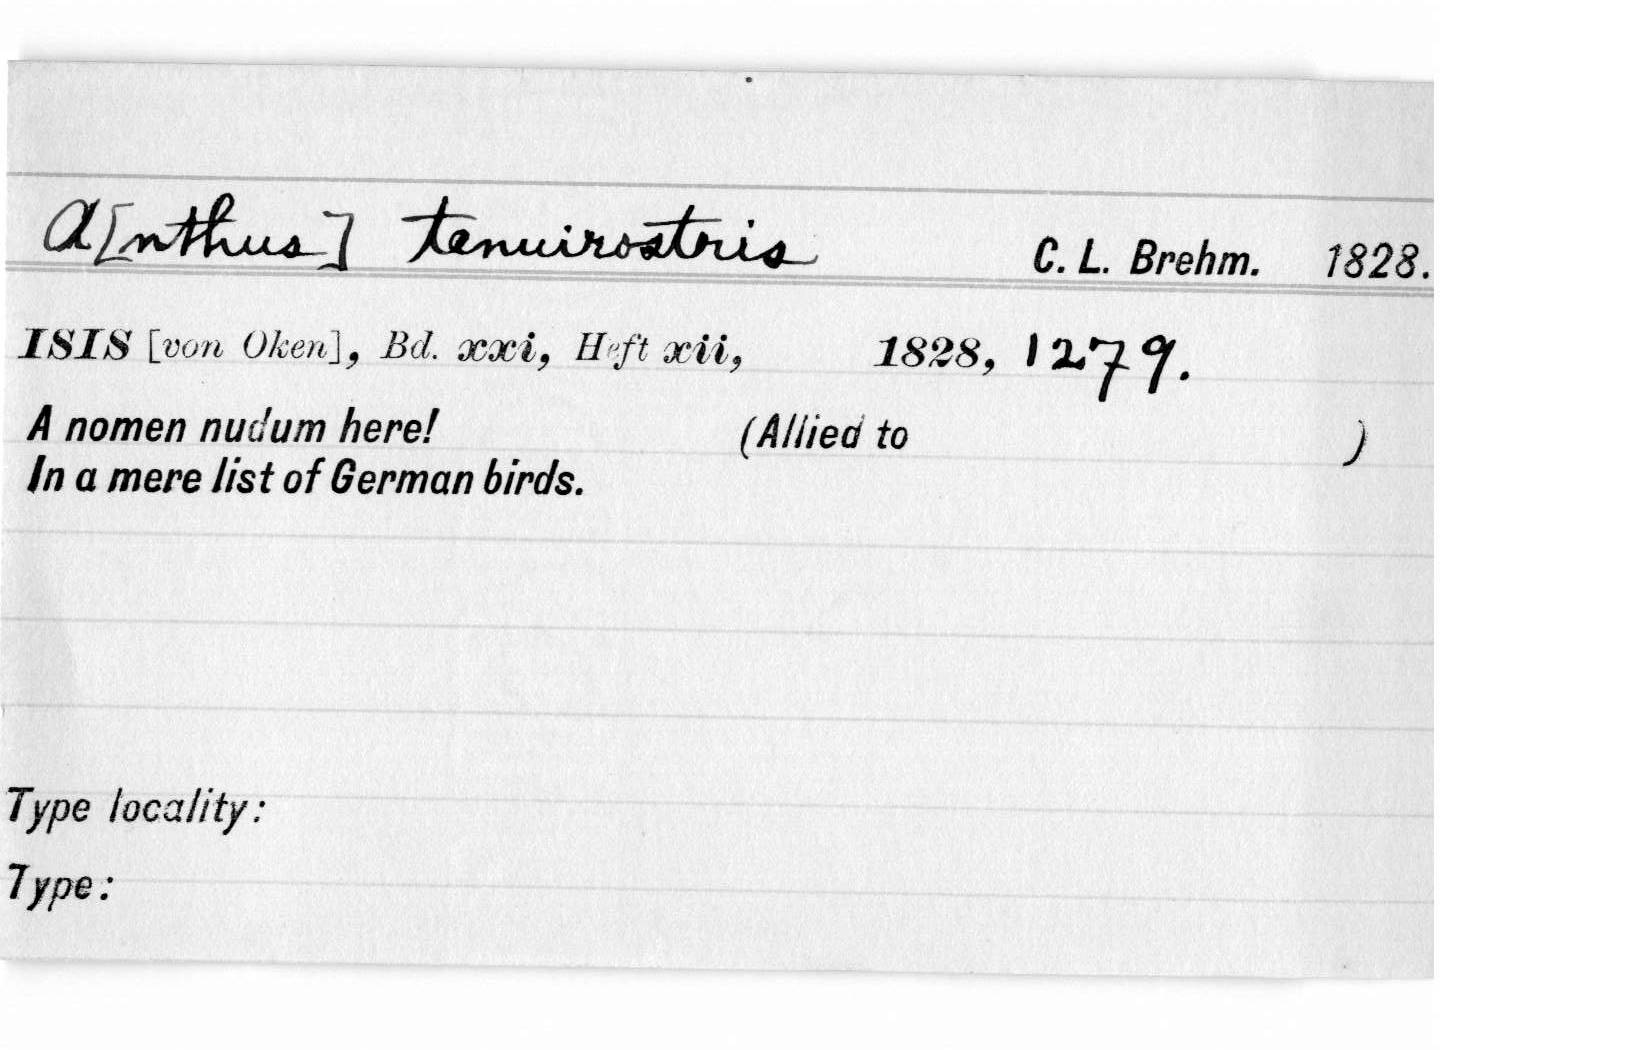 A[nthus] tenuirostris C. L. Brehm. 1828.
ISIS [von Oken], Bd. xxi, Heft xii, 1828, 1279.
A nomen nudum here! (Allied to )
In a mere list of German birds.
Type locality:
Type: